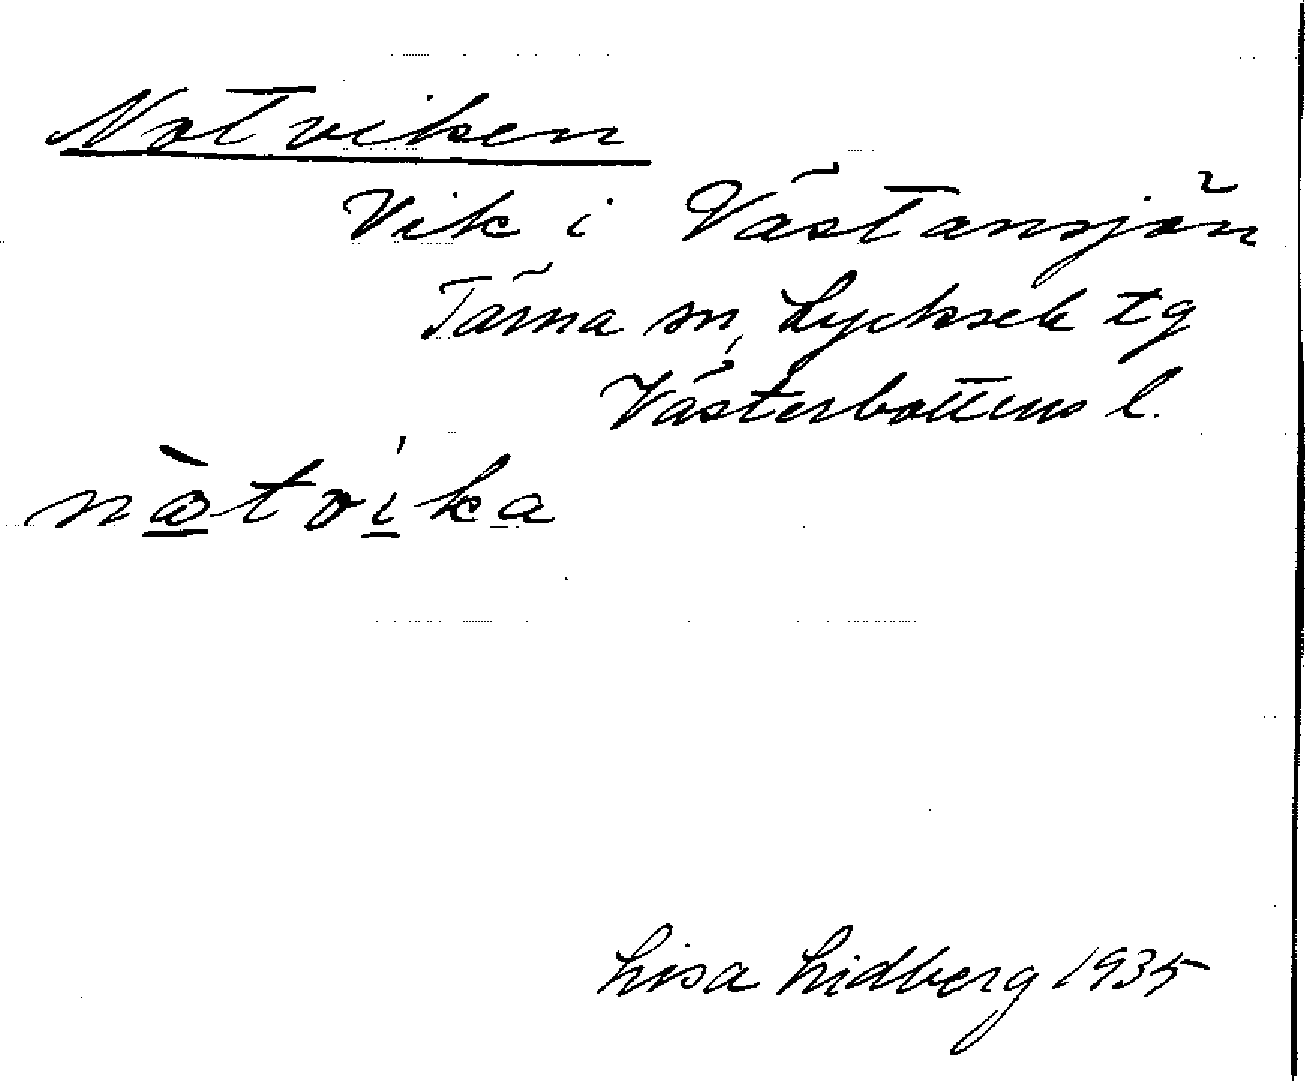 Notviken
Vik i Västansjön
Tärna sn, Lycksele tg
Västerbottens l.
nòtvika
Lisa Lidberg 1935